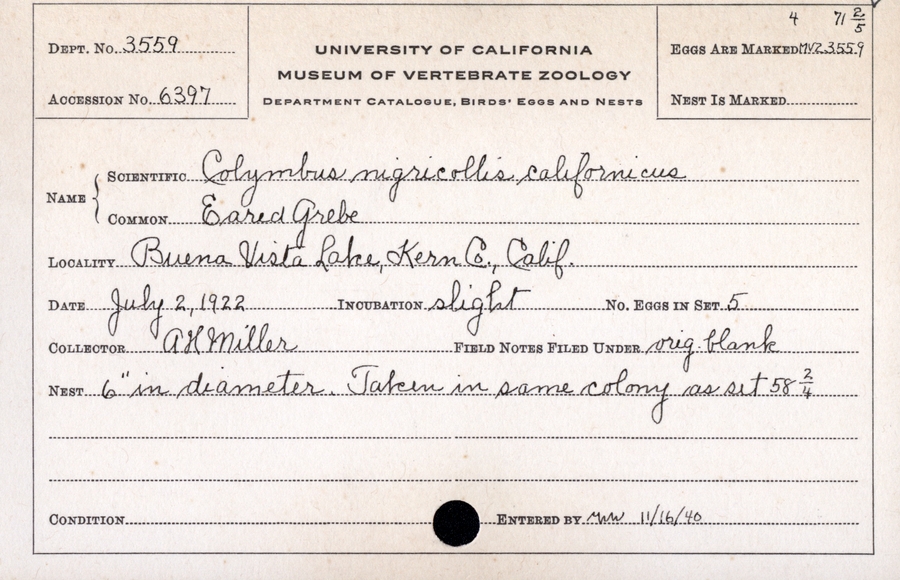 4 71 2/5
DEPT. NO. 3559
UNIVERSITY OF CALIFORNIA
EGGS ARE MARKED MVZ3559
MUSEUM OF VERTEBRATE ZOOLOGY
ACCESSION NO. 6397
DEPARTMENT CATALOGUE, BIRDS' EGGS AND NESTS
NEST IS MARKED
NAME
SCIENTIFIC Colymbus nigricollis californicus
COMMON Eared Grebe
LOCALITY Buena Vista Lake, Kern Co., Calif.
DATE July 2, 1922 INCUBATION slight NO. EGGS IN SET 5
COLLECTOR AH Miller FIELD NOTES FILED UNDER orig. blank
NEST 6" in diameter. Taken in same colony as set 58 2/4
CONDITION ENTERED BY 11/16/40